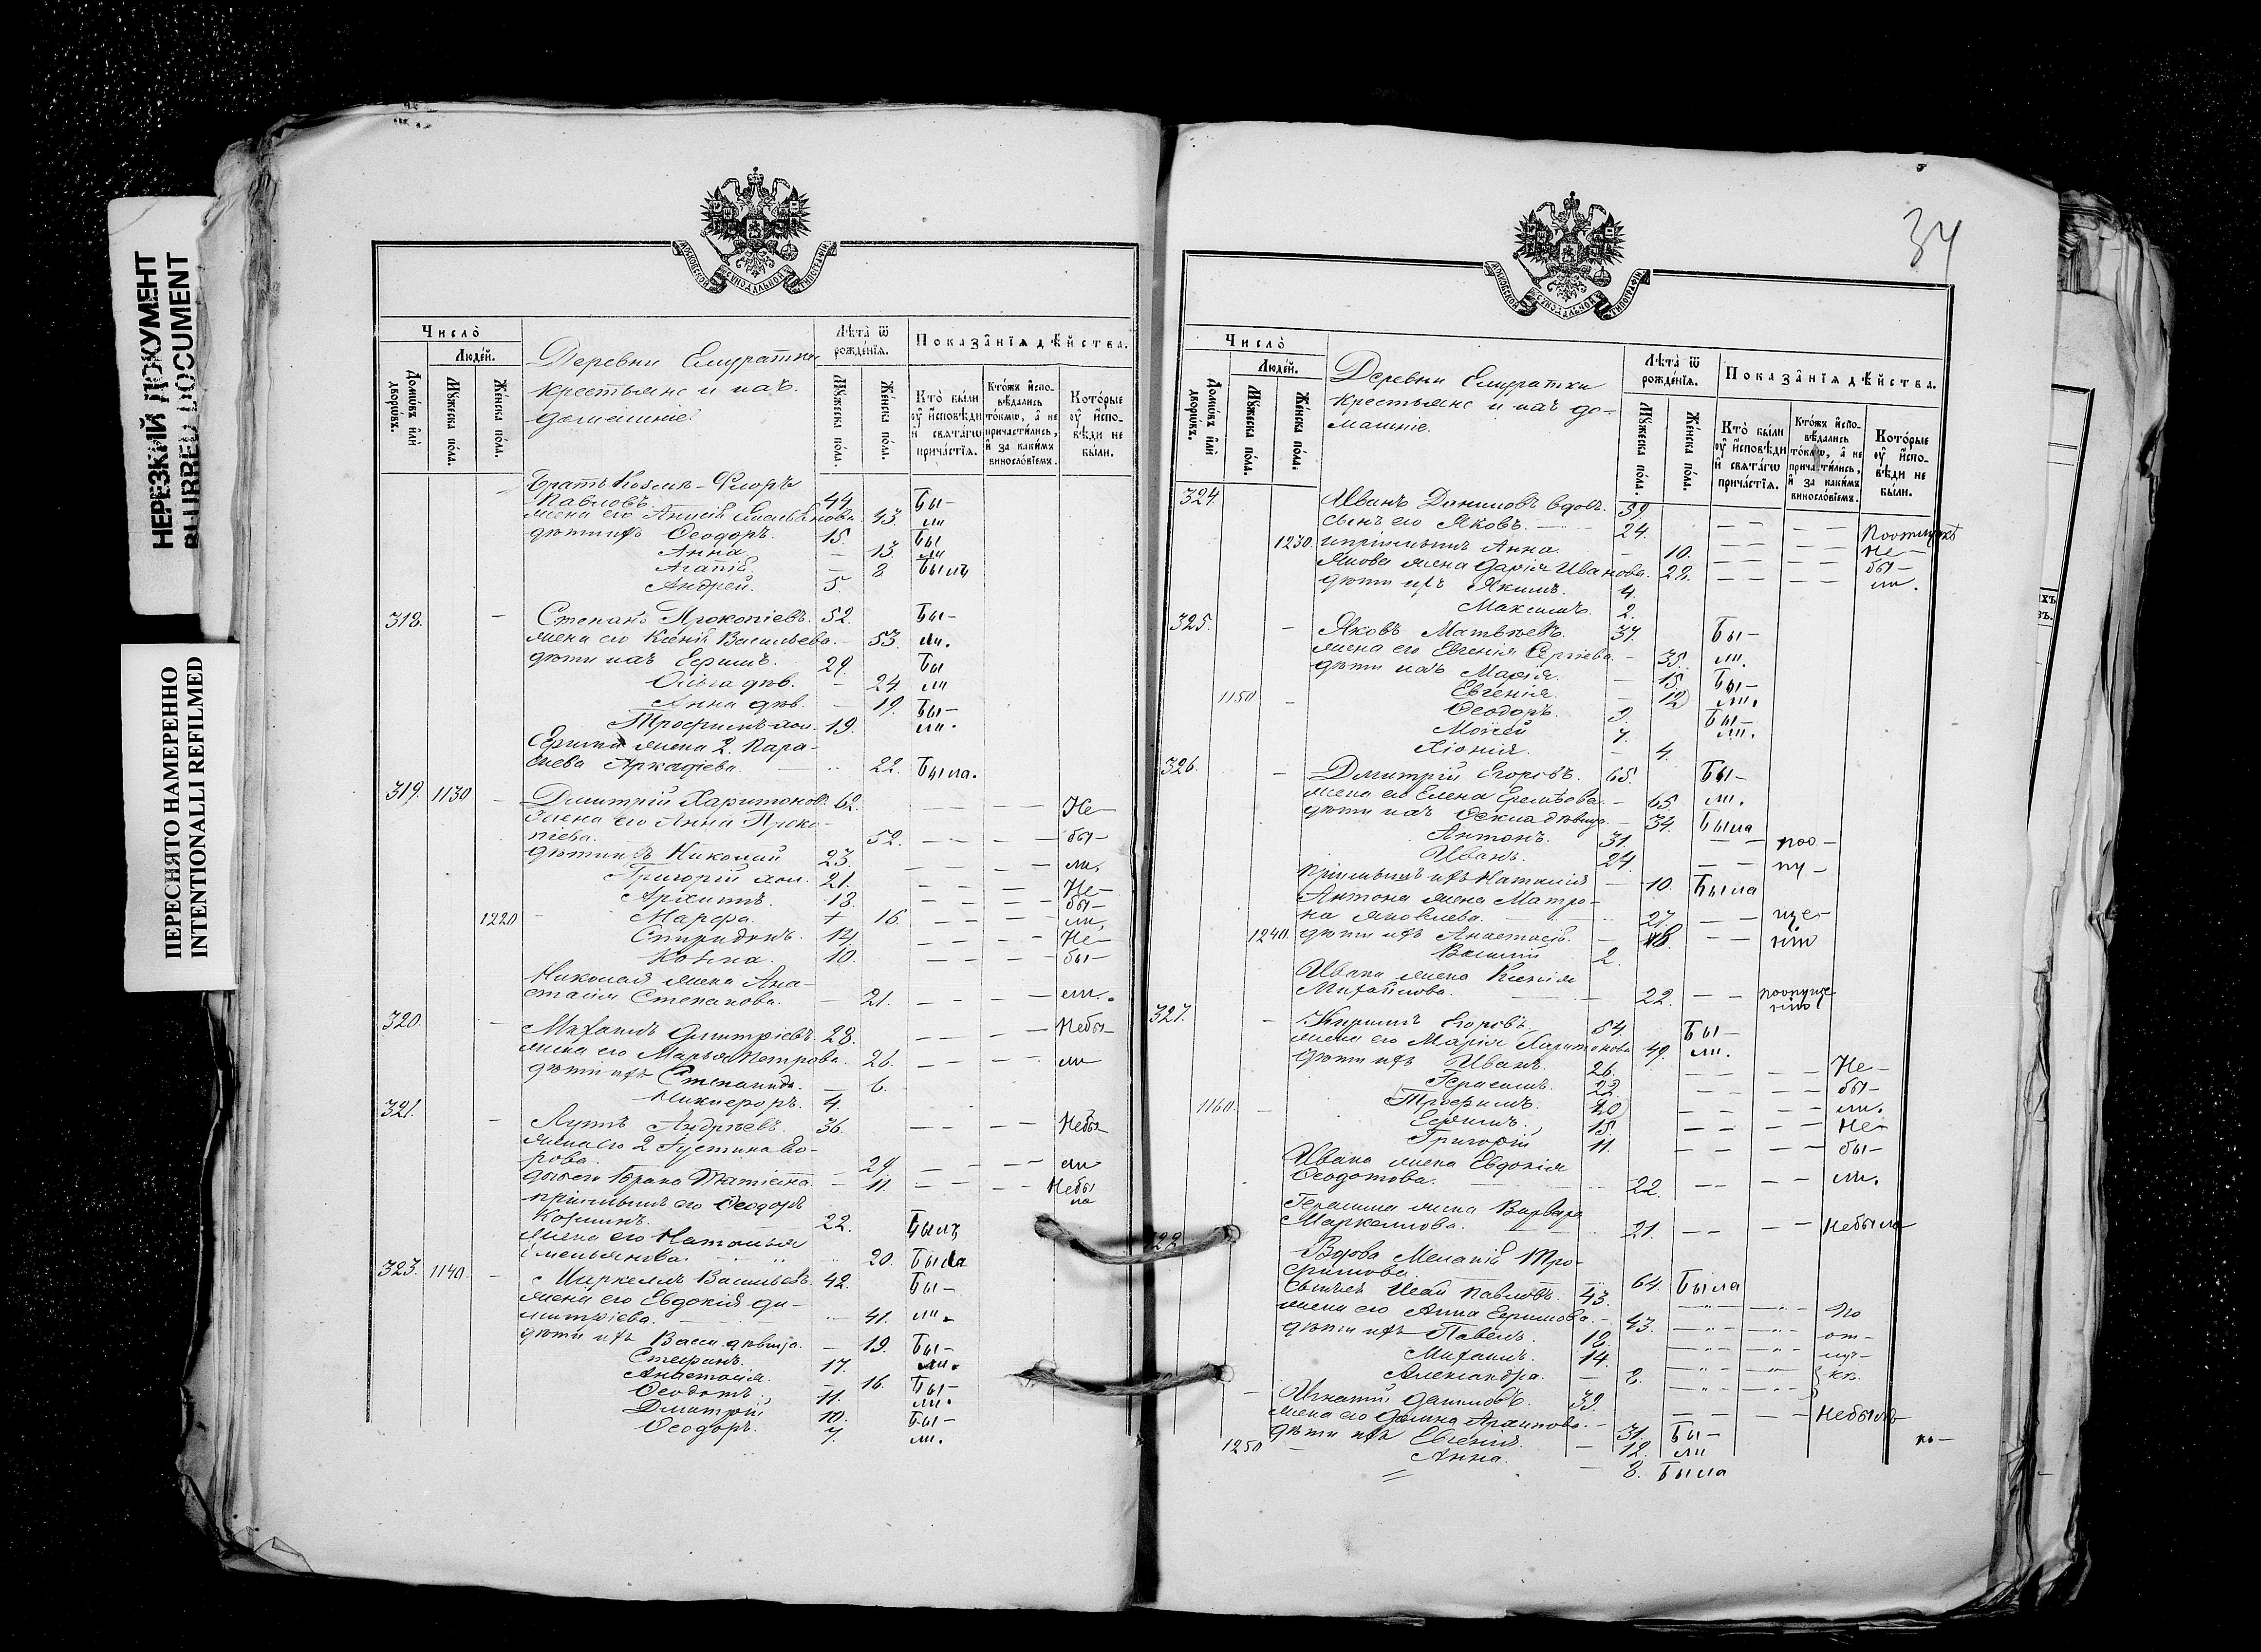 НЕРЕЗКИЙ ДОКУМЕНТ
BLURRED DOCUMENT
ПЕРЕСНЯТО НАМЕРЕННО
INTENTIONALLI REFILMED
МОСКОВСКОЙ СѴНОДАЛЬНОЙ ТИПОГРАФІИ
Число̀
Люде́й.
Домѡ́въ и҆лѝ дворѡ́въ.
Мꙋ́жеска по́ла.
Же́нска по́ла.
Деревни
крестьяне и ихъ
домашніе
Лѣта̀ ѿ рожде́нїѧ.
Мꙋ́жеска по́ла.
Же́нска по́ла.
Показа̑нїѧ дѣ́йства.
Кто̀ бы́ли оу҆ и҆́сповѣди и҆ свѧта́гѡ прича́стїѧ.
Кто́жъ и҆спо-вѣ́дались то́кмѡ, а҆ не причасти́лись, и҆ за каки́мъ винослові́емъ.
Кото́рые оу҆ и҆спо-вѣди не бы́ли.
Братъ Козма-Флоръ
Павловъ. 44 Бы-
жена его Анисія Емельянова 43. ли
дѣти ихъ Ѳеодоръ. 15. Бы
Анна — 13. ли
Агапія — 8 Былъ
Андрей. 5.
318. — Степанъ Прокопіевъ. 52. Бы-
жена его Ксенія Васильева. — 53. ли.
дѣти ихъ Ефимъ. 29. Бы
Ольга дѣв. — 24. ли
Анна дѣв. — 19. Бы-
Трофимъ хол. 19. ли.
Ефима жена 2. Пара-
Аркадіева. 22. Была.
319. 1130 — Димитрій Харитонов. 62. Не-
жена его Анна Проко-
піева. 52. бы-
дѣти ихъ Николай 23. ли.
Григорій хол. 21. Не-
Архипъ. 18. бы-
1220 — Марфа. + 16 ли,
Спиридонъ. 14 Не-
Козма. 10. бы-
Николая жена Ана-
стасія Степанова. — 21. ли.
320. — Михаилъ Димитріевъ. 28. Небы-
жена его Марья Петрова. 26. ли
дѣти ихъ Степанида. — 6.
Никифоръ. 4.
321. — Лупъ Андреевъ. 36. Небы-
жена его 2 Густина Ѳо-
рова. — 29. ли
до его брака Татіана. — 11. Небы
ла
пріемышъ его Ѳеодоръ
22. Былъ
жена его Наталья
Емельянова. 20. Была
323. 1140. — Маркеллъ Васильевъ 42. Бы-
жена его Евдокія Ди-
митріева. 41. ли.
дѣти ихъ Васса дѣвица. — 19. Бы-
Стефанъ. 17. ли.
Анастасія. 16. Бы-
Ѳеодотъ. 11. ли.
Димитрій 10. Бы-
Ѳеодоръ. 7. ли.
34
МОСКОВСКОЙ СѴНОДАЛЬНОЙ ТИПОГРАФІИ
Число̀
Люде́й.
Домѡ́въ и҆лѝ дворѡ́въ.
Мꙋ́жеска по́ла.
Же́нска по́ла.
Деревни
крестьяне и ихъ до-
машніе.
Лѣта̀ ѿ рожде́нїѧ.
Мꙋ́жеска по́ла.
Же́нска по́ла.
Показа̑нїѧ дѣ́йства.
Кто̀ бы́ли оу҆ и҆́сповѣди и҆ свѧта́гѡ прича́стїѧ.
Кто́жъ и҆спо-вѣ́дались то́кмѡ, а҆ не причасти́лись, и҆ за каки́мъ винослові́емъ.
Кото́рые оу҆ и҆спо-вѣди не бы́ли.
324. Иванъ Даниловъ вдов. 59.
сынъ его Яковъ. 24. Поотлучкѣ
1230. пріемышъ Анна. — 10. Не-
Якова жена Дарія Иванова. 22. бы-
дѣти ихъ Якимъ. 4. ли.
Максимъ. 2.
325. — Яковъ Матвѣевъ. 37. Бы-
жена его Евгенія Сергіева. — 35. ли.
дѣти ихъ Марія. — 15. Бы-
1150 — Евгенія. — 12 ли.
Ѳеодоръ. 9. Бы-
Моисей 7. ли.
Хіонія. — 4.
326. — Димитрій Егоровъ. 65. Бы-
жена его Елена — 65. ли.
дѣти ихъ Ѳекла дѣвица. — 34. Была
Антонъ. 31. поо-
Иванъ. 24. пу-
пріемышъ ихъ Наталія — 10. Была
Антона жена Матро-
на Яковлева. 27. ще-
1240. дѣти ихъ Анастасія. — 8. нію
Василій 2.
Ивана жена Ксенія
Михайлова. — 22. поопуще-
нію
327. — Кириллъ Егоровъ 54. Бы-
жена его Марія Харитонова 49. ли.
дѣти ихъ Иванъ. 26. Не-
Герасимъ. 22. бы-
1160. — Трофимъ. 20 ли.
Ефимъ. 15 Не-
Григорій 11. бы-
Ивана жена Евдокія
Ѳеодотова. 22. ли.
Герасима жена Варвара
Маркеллова. 21. Небыла
Вдова Меланія Тро-
фимова. 64. Была
сынъ ея Исай Павловъ. 43. По
жена его Анна Ефимова. — 43. от-
дѣти ихъ Павелъ. 18. луч-
Михаилъ. 14. кѣ.
Александра. — 8.
— Игнатій Даниловъ. 39. Небылъ
жена его Архипова. — 31. Бы-
дѣти ихъ Евгенія. — 12. ли
1250 — Анна. — 8. Была
по-